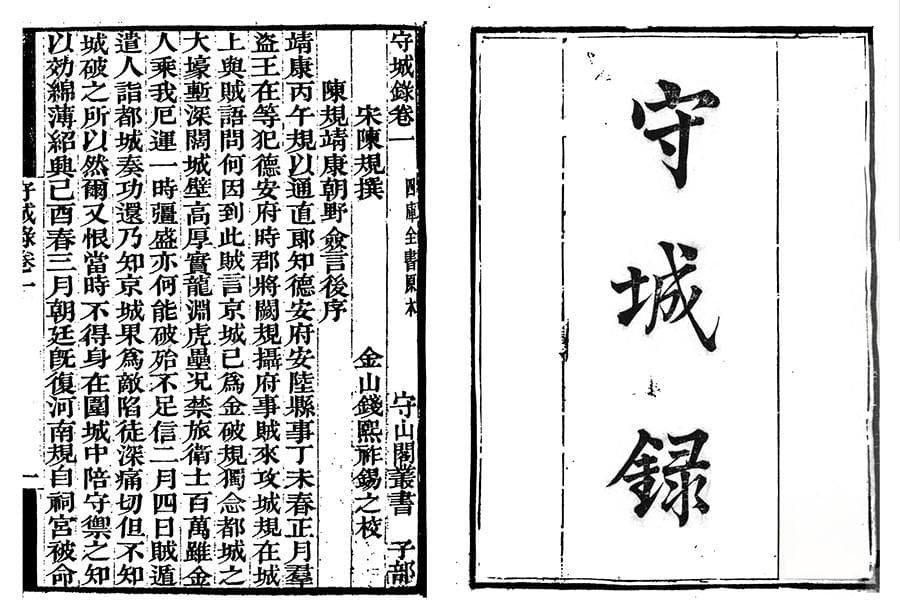 守
城
録
守城錄卷一 四庫全書原本 守山閣叢書 子部
宋陳規撰 金山錢熙祚錫之校
陳規靖康朝野僉言後序
靖康丙午規以通直郎知德安府安陸縣事丁未春正月羣
盜王在等犯德安府時郡將闕規攝府事賊來攻城規在城
上與賊語問何因到此賊言京城已爲金破規獨念都城之
大壕塹深闊城壁高厚實龍淵虎壘况禁旅衛士百萬雖金
人乘我厄運一時彊盛亦何能破殆不足信二月四日賊遁
遣人詣都城奏功還乃知京城果爲敵陷徒深痛切但不知
城破之所以然爾又恨當時不得身在圍城中陪守禦之知
以効綿薄紹興己酉春三月朝廷旣復河南規自祠宮被命
守城錄卷一 一